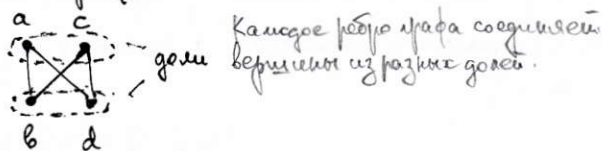 a c
доли
b d
Каждое ребро графа соединяет
вершины из разных долей.